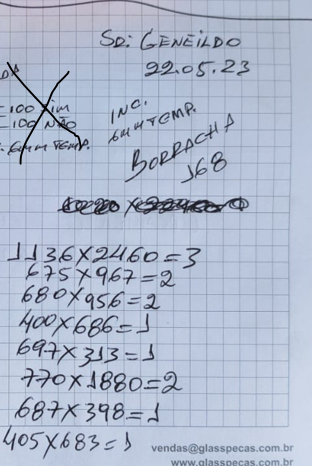 SD: GENEILDO
22.05.23
100 SIM
100 NÃO
6MM TEMP.
INC.
6MM TEMP.
BORRACHA
168
1136X2460=3
675X967=2
680X956=2
400X686=1
697X313=1
770X1880=2
687X398=1
405X683=1
vendas@glasspecas.com.br
www.glasspecas.com.br